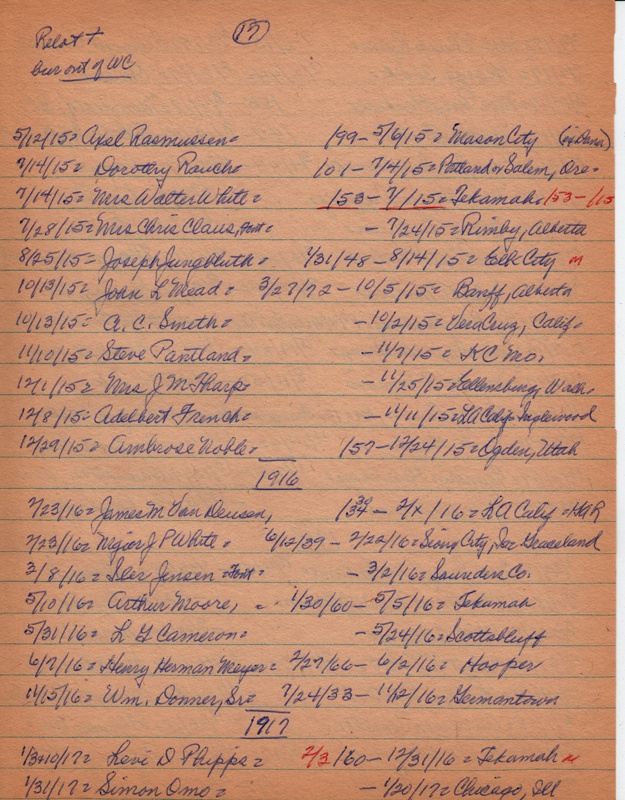 17
Relat +
bur out of WC
5/12/15= Axel Rasmussen= 199 - 5/6/15= Mason City (ex Dana)
7/14/15= Dorothy Rauch= 101 - 7/4/15= Portland or Salem, Ore=
7/14/15= Mrs Walter White= 153 - 7/1/15= Tekamah= 153 - /15
7/28/15= Mrs Chris Claus, Font= - 7/24/15= Rimby, Alberta
8/25/15= Joseph Jungbluth= 1/31/48 - 8/14/15= Elk City M
10/13/15= John L Mead= 3/27/72 - 10/5/15= Banff, Alberta
10/13/15= A. C. Smith= - 10/2/15= Vera Cruz, Calif=
11/10/15= Steve Pantland= - 11/7/15= KC Mo.
12/1/15= Mrs J M Tharp= - 11/25/15= Ellensburg, Wash=
12/8/15= Adelbert French= - 11/11/15= LA Calif= Inglewood
12/29/15= Ambrose Noble= 157 - 12/24/15= Ogden, Utah
1916
2/23/16= James M Van Deusen, 134 39 - 2/x/16= LA Calif =
2/23/16= J P White= 6/12/39 - 2/22/16= Sioux City, Ia= Graceland
3/8/16= Jensen =Font= - 3/2/16= Saunders Co.
5/10/16= Arthur Moore, = 1/30/60 - 5/5/16= Tekamah
5/31/16= L G Cameron= - 5/24/16= Scottsbluff
6/7/16= Henry Herman Meyer= 2/27/66 - 6/2/16= Hooper
11/15/16= Wm. Donner, Sr= 7/24/33 - 11/2/16= Germantown
1917
1/3+10/17= Levi D Phipps= 2/3/60 - 12/31/16= Tekamah M
1/31/17= Simon Omo= - 1/20/17= Chicago, Ill